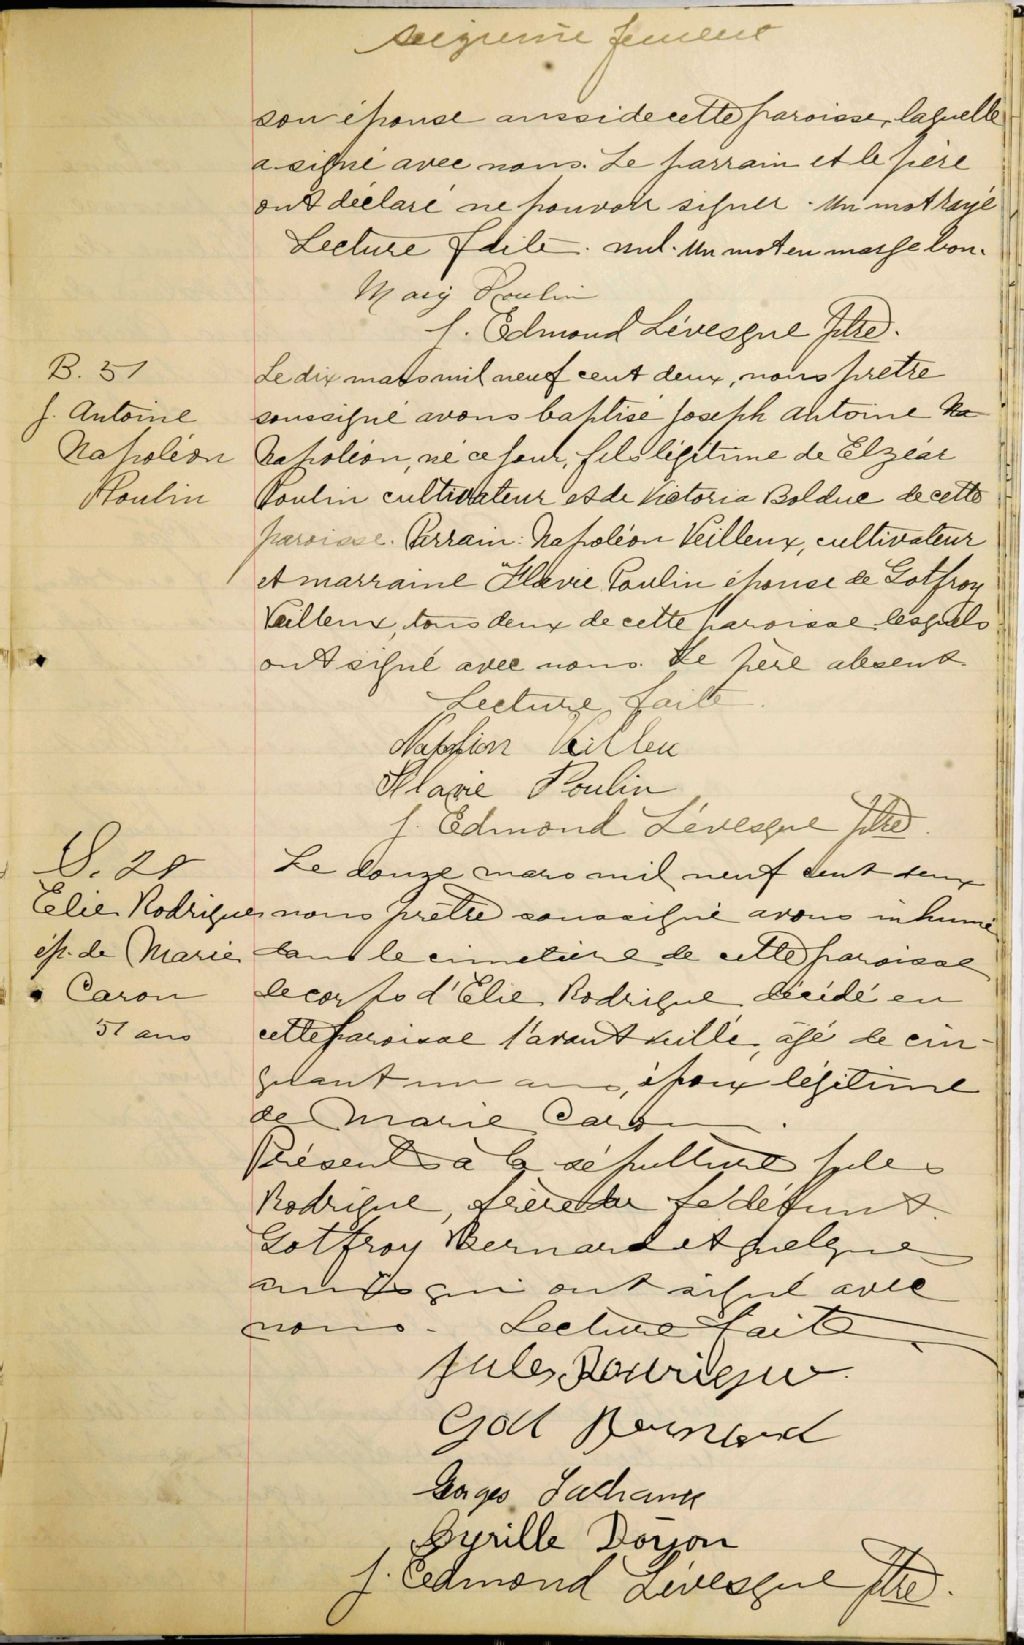 seizieme feuillet
son épouse aussi de cette paroisse, laquelle
a signé avec nous. Le parrain et le père
ont déclaré ne pouvoir signer. Un mot rayé
Lecture faite. nul. Un mot en marge bon.
Mary Poulin
J. Edmond Lévesque Ptre.
B. 51
J. Antoine
Napoléon
Poulin
Le dix mars mil neuf cent deux, nous prêtre
soussigné avons baptisé Joseph Antoine Na
Napoléon, né ce jour, fils légitime de Elzéar
Poulin cultivateur et de Victoria Bolduc de cette
paroisse. Parrain: Napoléon Veilleux, cultivateur
et marraine Flavie Poulin épouse de Gotfroy
Veilleux, tous deux de cette paroisse lesquels
ont signé avec nous. Le père absent.
Lecture faite.
Napolion Veilleu
Flavie Poulin
J. Edmond Lévesque Ptre.
S. 28
Elie Rodrigue
ép. de Marie
Caron
51 ans
Le douze mars mil neuf cent deux
nous prêtre soussigné avons inhumé
dans le cimetière de cette paroisse
le corps d'Elie Rodrigue décédé en
cette paroisse l'avant veille, âgé de cin-
quant un ans, époux légitime
de Marie Caron.
Présents à la sépulture Jules
Rodrigue, frère du défunt
Gotfroy Bernard et quelques
amis qui ont signé avec
nous. Lecture faite
Jules Rourigue
God Bernard
Georges
Cyrille Doyon
J. Edmond Lévesque Ptre.